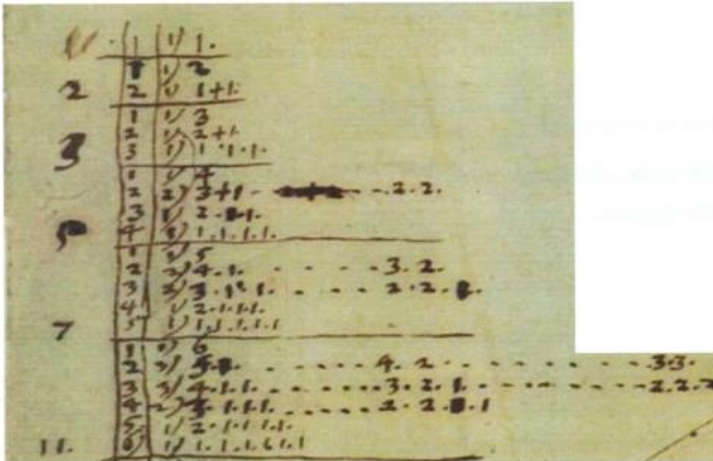 1 1) 1.
1 1) 2
2 2 1) 1+1.
1 1) 3
2 1) 2+1.
3 3 1) 1.1.1.
1 1) 4
2 2) 3+1 - - - 2.2.
3 1) 2.1.1.
5 4 1) 1.1.1.1.
1 1) 5
2 2) 4.1. - - - - - 3.2.
3 2) 3.1.1. - - - - - 2.2.1.
4 1) 2.1.1.1.
7 5 1) 1.1.1.1.1
1 1) 6
2 3) 5.1. - - - - - 4.2 - - - - - - - - 3.3.
3 3) 4.1.1. - - - - - 3.2.1. - - - - - - - 2.2.2
4 2) 3.1.1.1. - - - - - 2.2.1.1
5 1) 2.1.1.1.1.
11. 6 1) 1.1.1.1.1.1